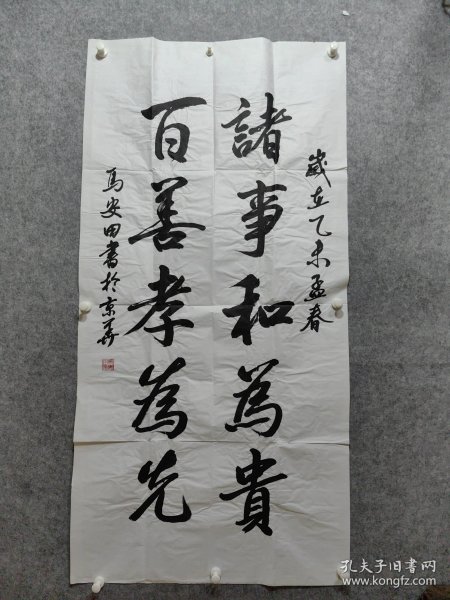 歲在乙未孟春
諸事和為貴
百善孝為先
馬安田書於京華
孔夫子旧书网
www.kongfz.com